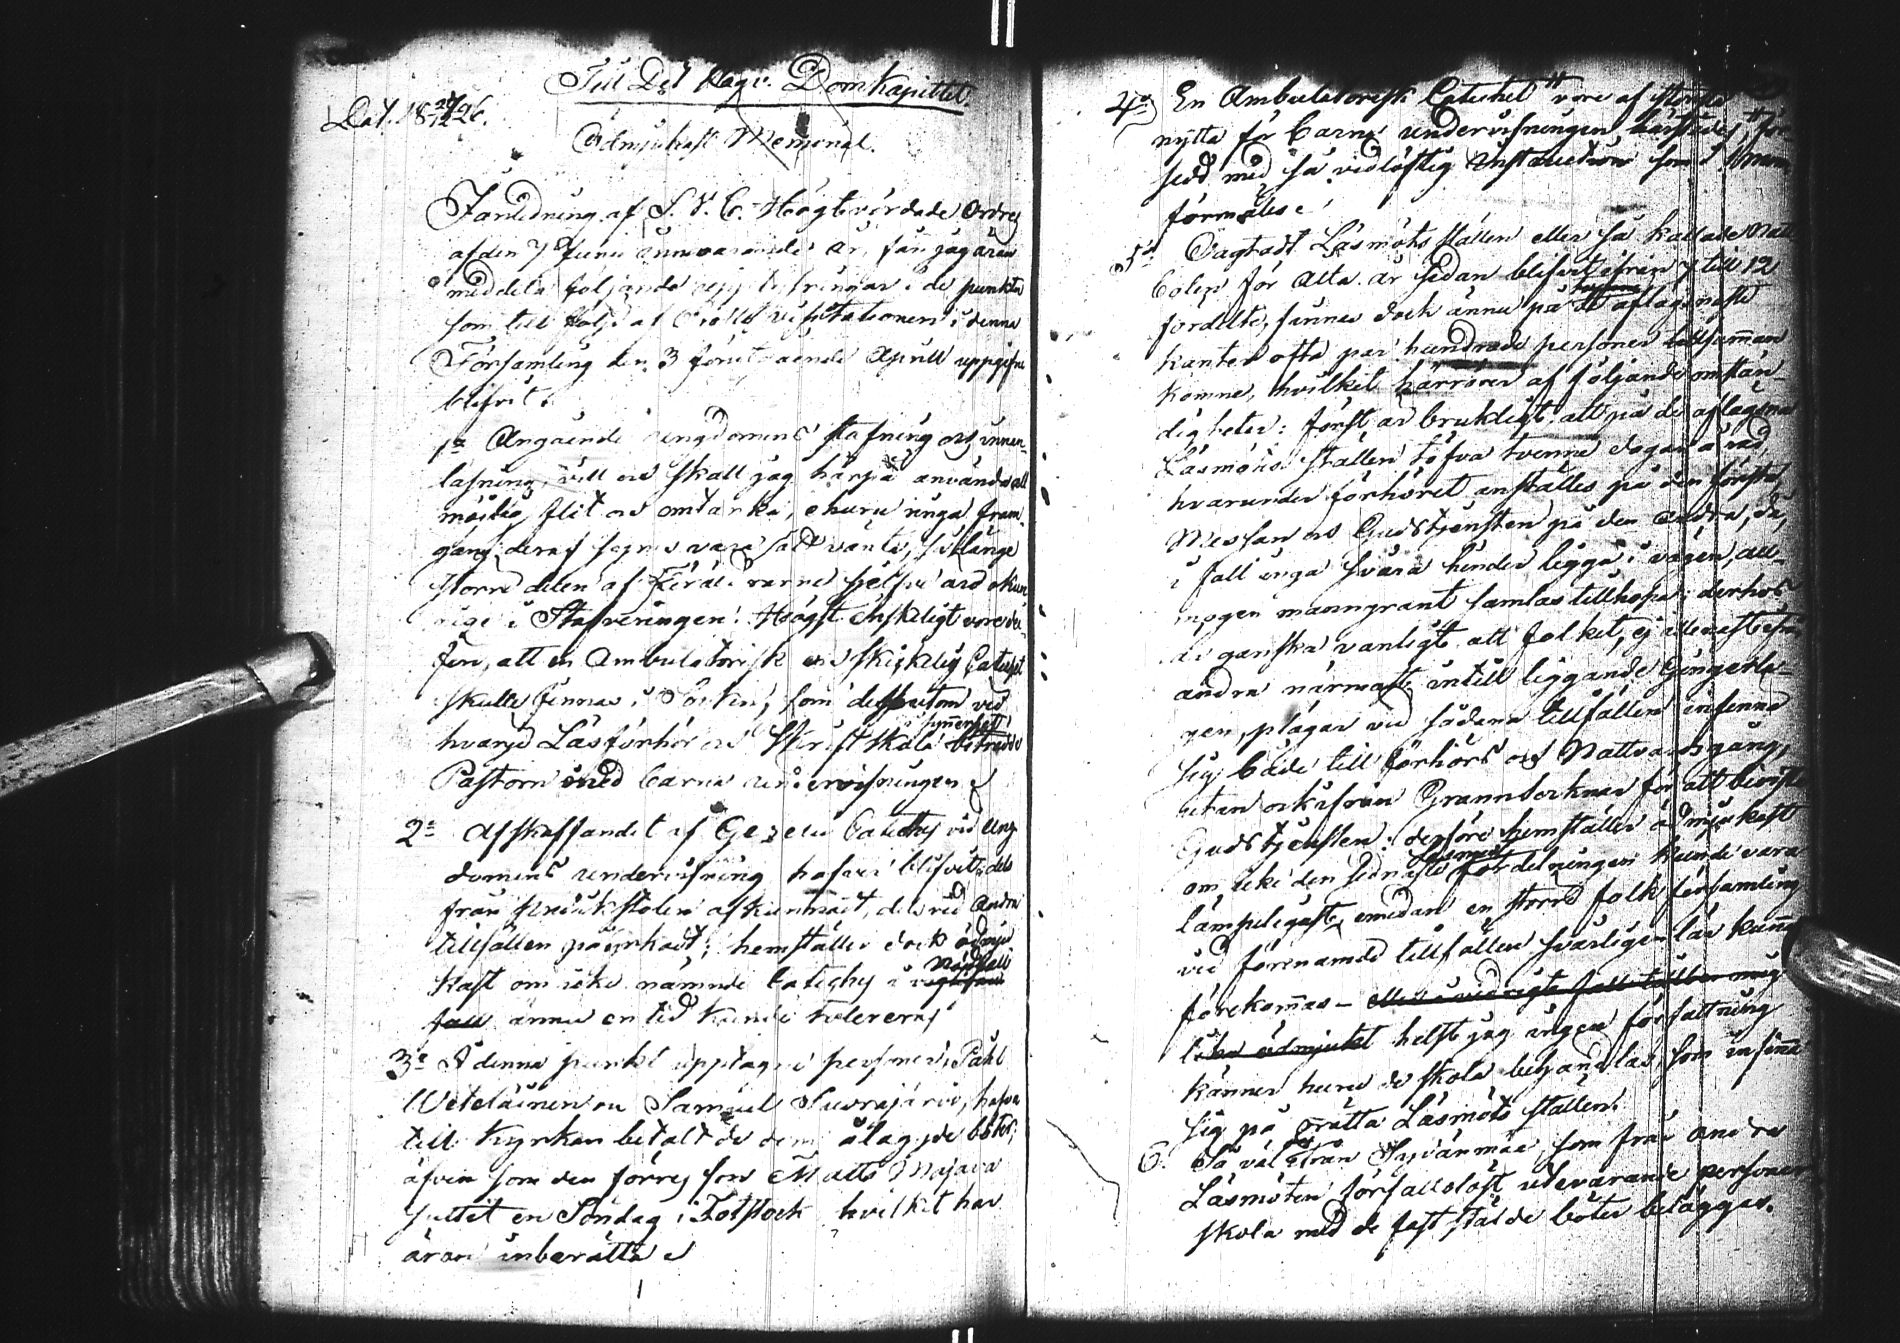 Till Det Högv. Domkapitlet.
Dat. 18 24/12 26.
Ödmjukast Memorial.
I anledning af S. V. C. Högtvördade Ordres
af den 7 Junii innevarande år, får jag äran
meddela följande upplysningar i de punkter
som till följd af visitationen i denna
Församling den 3 föregående April uppgifne
blifvit.
1o Angående ungdomens stafning och innan-
läsning, vill och skall jag härpå använda all
möjlig flit och omtanka, ehuru ringa fram-
gång deraf synes vara att vänta, så länge
större delen af Föräldrarne sjelfve äro okun-
nige i Stafningen. Högst önskeligt vore der-
före, att en Ambulatorisk och skicklig Catechet
skulle finnas i Socknen, som dessutom vid
hvarje Läsförhör och Skriftskola i synnerhet biträdde
Pastorn med barna undervisningen
2o Afskaffandet af Gezelii Cateches vid Ung-
domens undervisning hafver blifvit, dels
från predikstolen afkunnadt, dels vid andra
tillfällen påyrkadt; hemställer dock ödmju-
kast om icke nämnde Cateches i nödfall
fall ännu en tid kunde tolereras
3o I denna punkt upptagne personer, Påhl
Weteläinen och Samuel Suorajärvi, hafva
till Kyrkan betalt de dem ålagde böter,
äfven som den förres son Matts Majava
suttit en Söndag i Fotstock hvilket har
äran inberätta
4o En Ambulatorisk Catechet # vore af största
nytta för barna undervisningen härstädes, # för-
sedd med så vidlöftig Instruction som i
förmäles.
5o Oagtadt Läsmöts ställen eller så kallade
för detta år sedan blifvit ifrån 7 till 12
fördelte, finnes dock ännu på de aflägsnaste
kanter ofta par hundrade personer tillsamman
komne, hvilket härrörer af följande omstän-
digheter: först är brukligt att på de aflägsna
Läsmöts ställen töfva tvenne dagar å rad,
hvarunder förhöret anställes på den första,
Messan och Gudstjensten på den andra, då,
i fall inga svåra hinder ligga i vägen, all-
mogen manngrant samlas tillhopa; derhos
är ganska vanligt att folket, ej allenast ifrån
andra närmast intill liggande Gingerla-
gen, plägar vid sådana tillfällen infinna
sig både till förhörs och Nattvardsgång,
utan ock ifrån Grannsocknar för att bevista
Gudstjensten; derföre hemställer ödmjukast
om icke den sednaste Läsmöts fördelningen kunde vara
lämpeligast, emedan en större folk församling
vid förenämnde tillfällen svårligen lär kunna
förekommas – eller i vidrigt fall täcktes mig
ödmjukt helst jag ingen författning
känner huru de skola behandlas, som infinna
sig på orätta Läsmöts ställen.
6. Så väl ifrån Syvänmaa som från andra
Läsmöten förfallolöst utevarande personer
skola med de fastställde böter beläggas.